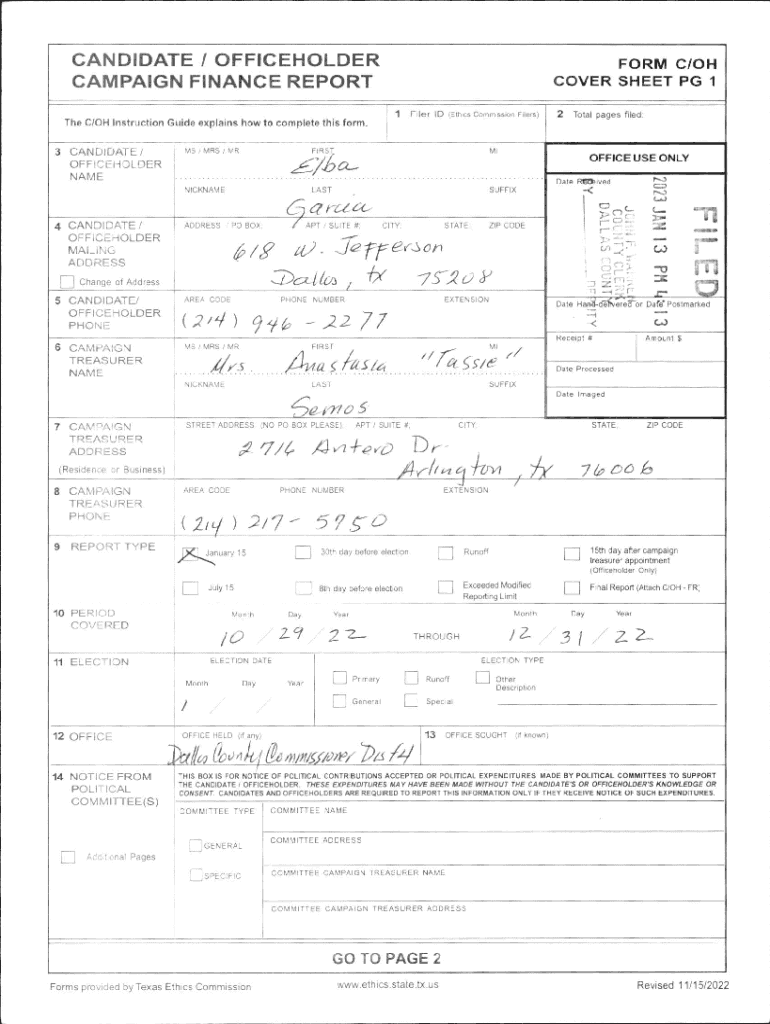 CANDIDATE / OFFICEHOLDER
CAMPAIGN FINANCE REPORT
FORM C/OH
COVER SHEET PG 1
The C/OH Instruction Guide explains how to complete this form.
1 Filer ID (Ethics Commission Filers)
2 Total pages filed:
3 CANDIDATE /
OFFICEHOLDER
NAME
MS / MRS / MR FIRST MI
Elba
NICKNAME LAST SUFFIX
Garcia
OFFICE USE ONLY
Date Received
FILED
2023 JAN 13 PM 4:13
COUNTY CLERK
DALLAS COUNTY
4 CANDIDATE /
OFFICEHOLDER
MAILING
ADDRESS
Change of Address
ADDRESS / PO BOX; APT / SUITE #; CITY; STATE; ZIP CODE
618 W. Jefferson
Dallas, tx 75208
5 CANDIDATE/
OFFICEHOLDER
PHONE
AREA CODE PHONE NUMBER EXTENSION
(214) 946 - 2277
Date Hand-delivered or Date Postmarked
Receipt # Amount $
Date Processed
Date Imaged
6 CAMPAIGN
TREASURER
NAME
MS / MRS / MR FIRST MI
Mrs. Anastasia "Tassie"
NICKNAME LAST SUFFIX
Semos
7 CAMPAIGN
TREASURER
ADDRESS
(Residence or Business)
STREET ADDRESS (NO PO BOX PLEASE); APT / SUITE #; CITY; STATE; ZIP CODE
2716 Antero Dr.
Arlington, tx 76006
8 CAMPAIGN
TREASURER
PHONE
AREA CODE PHONE NUMBER EXTENSION
(214) 217- 5950
9 REPORT TYPE
January 15 30th day before election Runoff 15th day after campaign
treasurer appointment
(Officeholder Only)
July 15 8th day before election Exceeded Modified
Reporting Limit
Final Report (Attach C/OH - FR)
10 PERIOD
COVERED
Month Day Year Month Day Year
10 / 29 / 22 THROUGH 12 / 31 / 22
11 ELECTION
ELECTION DATE ELECTION TYPE
Month Day Year
/ /
Primary Runoff Other
Description
General Special
12 OFFICE
OFFICE HELD (if any)
Dallas County Commissioner Dist 4
13 OFFICE SOUGHT (if known)
14 NOTICE FROM
POLITICAL
COMMITTEE(S)
Additional Pages
THIS BOX IS FOR NOTICE OF POLITICAL CONTRIBUTIONS ACCEPTED OR POLITICAL EXPENDITURES MADE BY POLITICAL COMMITTEES TO SUPPORT
THE CANDIDATE / OFFICEHOLDER. THESE EXPENDITURES MAY HAVE BEEN MADE WITHOUT THE CANDIDATE'S OR OFFICEHOLDER'S KNOWLEDGE OR
CONSENT. CANDIDATES AND OFFICEHOLDERS ARE REQUIRED TO REPORT THIS INFORMATION ONLY IF THEY RECEIVE NOTICE OF SUCH EXPENDITURES.
COMMITTEE TYPE COMMITTEE NAME
GENERAL
COMMITTEE ADDRESS
SPECIFIC
COMMITTEE CAMPAIGN TREASURER NAME
COMMITTEE CAMPAIGN TREASURER ADDRESS
GO TO PAGE 2
Forms provided by Texas Ethics Commission www.ethics.state.tx.us Revised 11/15/2022